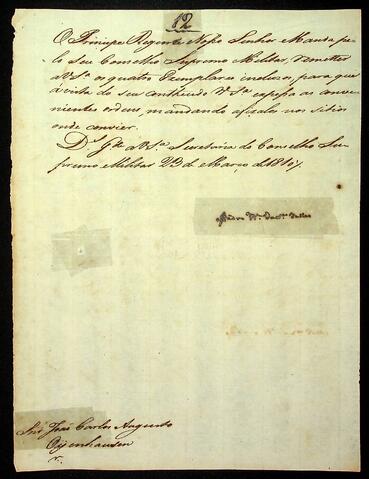 12
O Principe Regente Nosso Senhor Manda pe-
lo Seu Conselho Supremo Militar, remetter
a VSª. os quatro Exemplares inclusos, para que
á vista do seu contheudo VSª expessa as conve-
nientes ordens, mandando afixalos nos sitios
onde convier.
Ds. Gde a VSª. Secretaria do Conselho Su-
premo Militar 23 de Março de 1810
Snr. João Carlos Augusto
Oyenhausen